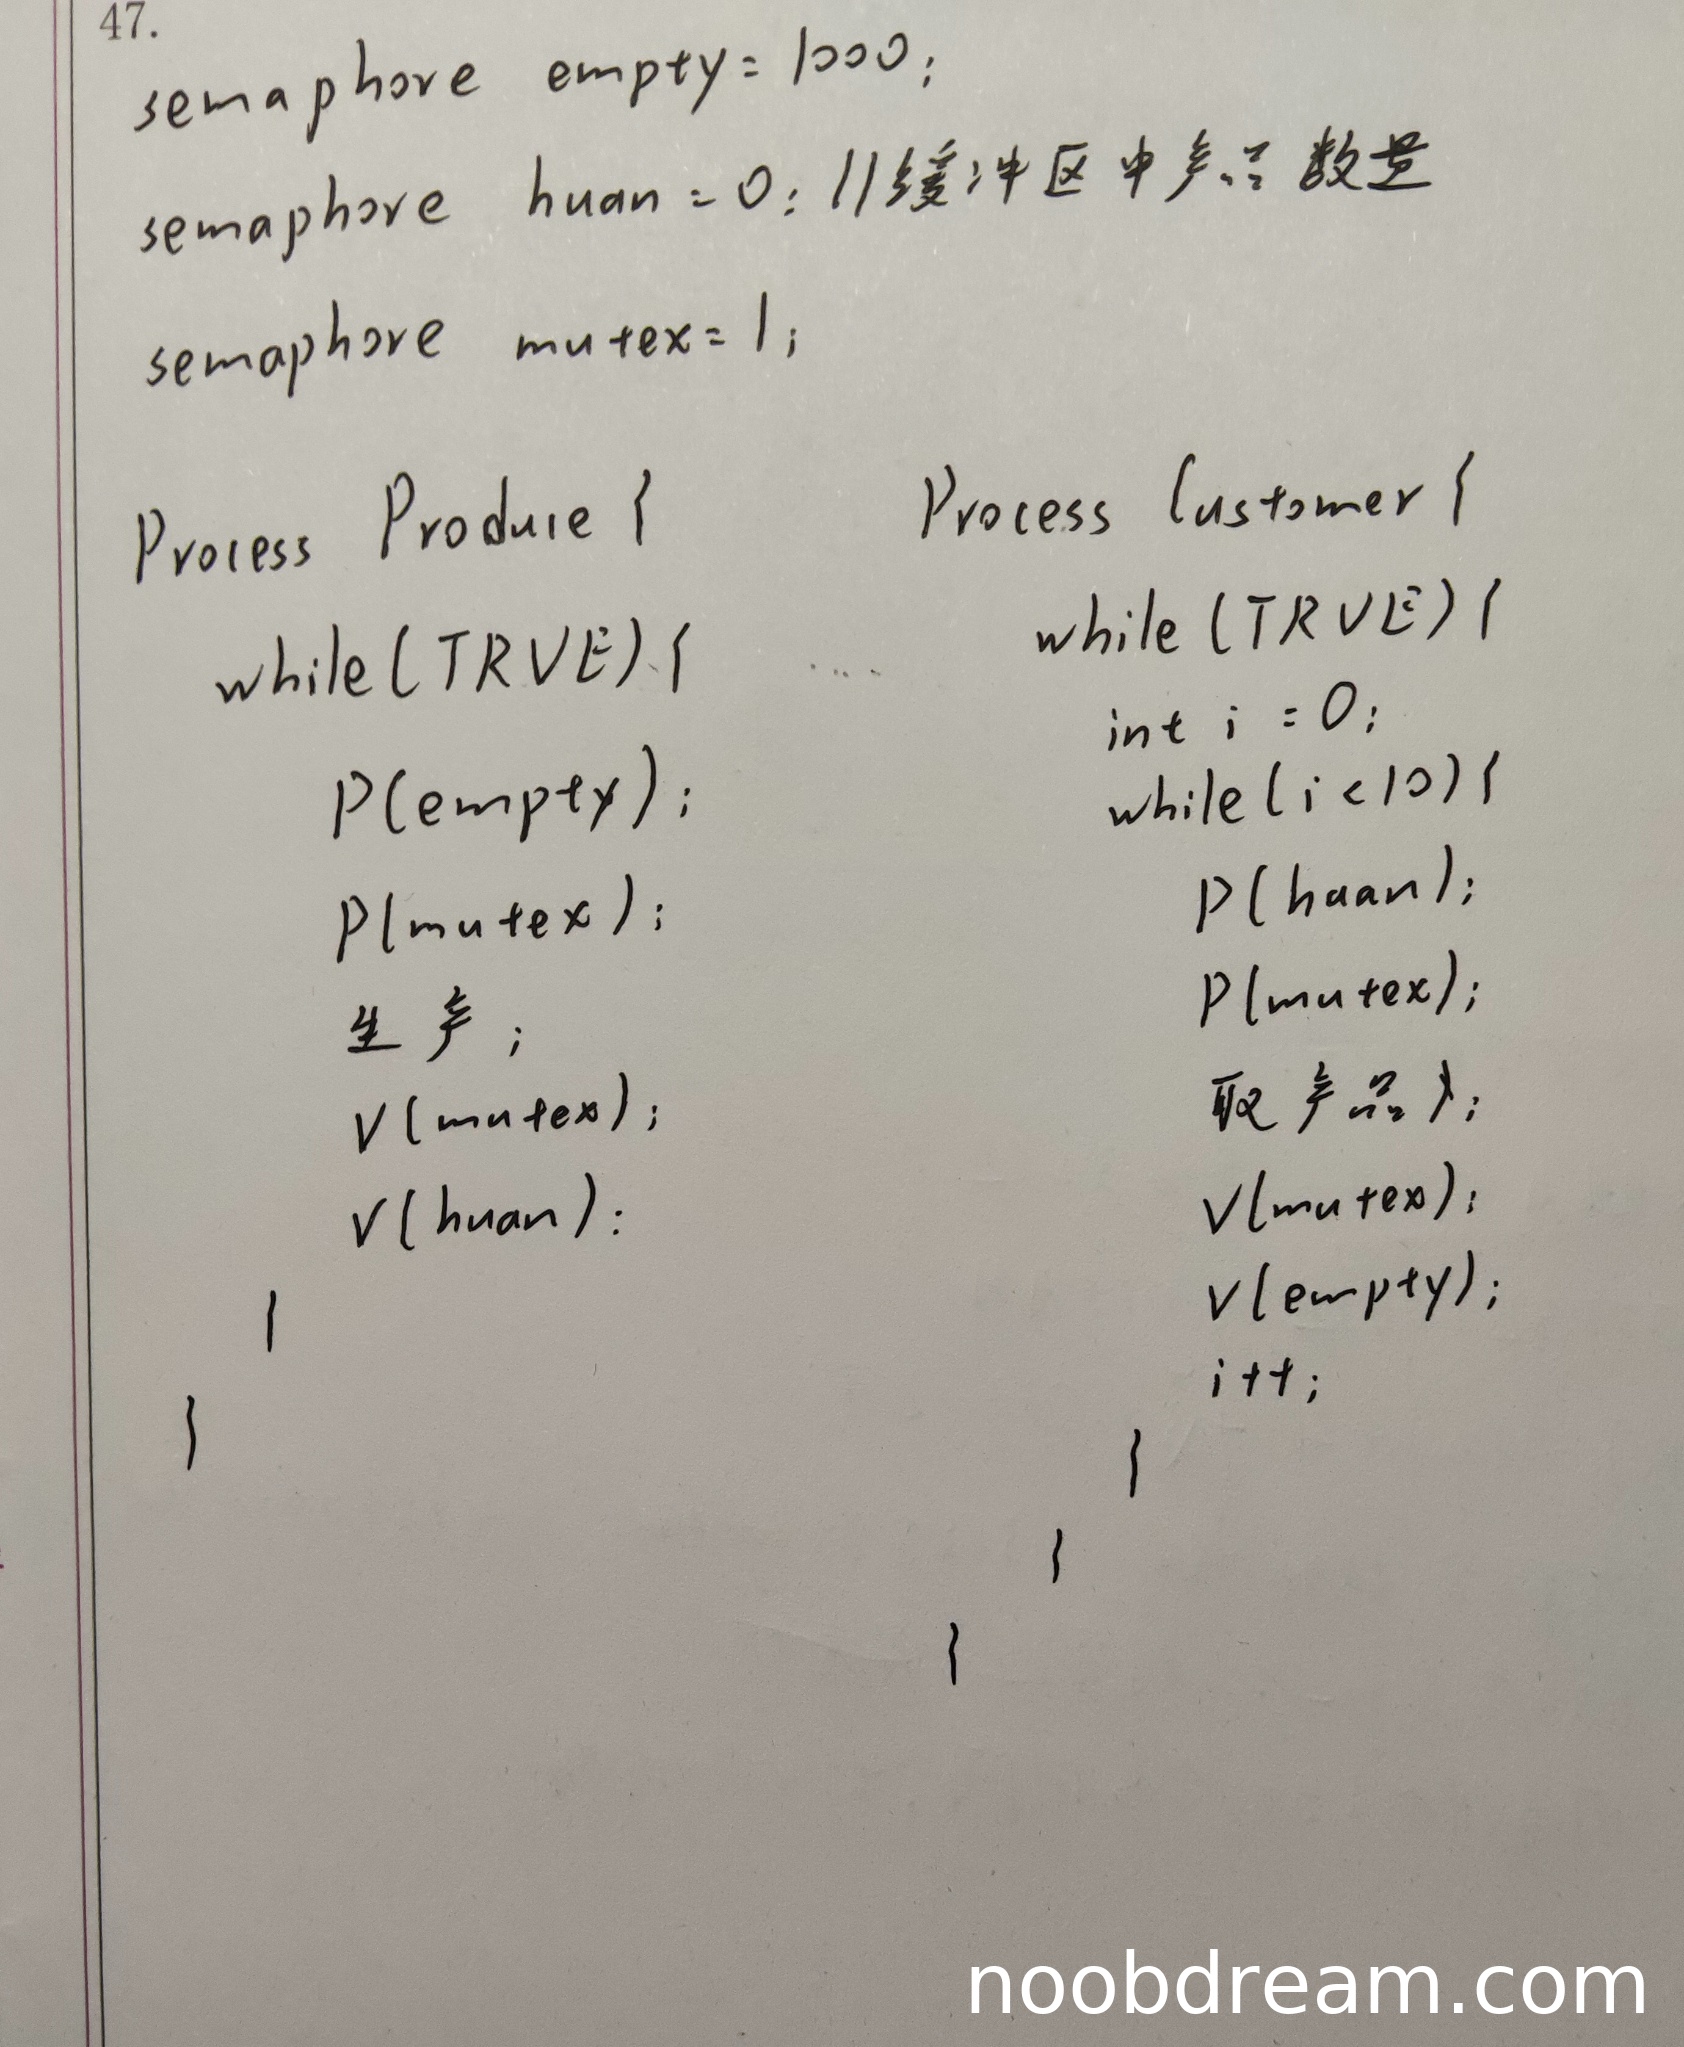 47.
semaphore empty=1000;
semaphore huan=0; //缓冲区中产品数量
semaphore mutex=1;
Process Produce {
while(TRUE){
P(empty);
P(mutex);
生产;
V(mutex);
V(huan);
}
}
Process Customer {
while(TRUE){
int i=0;
while(i<10){
P(huan);
P(mutex);
取产品;
V(mutex);
V(empty);
i++;
}
}
}
noobdream.com